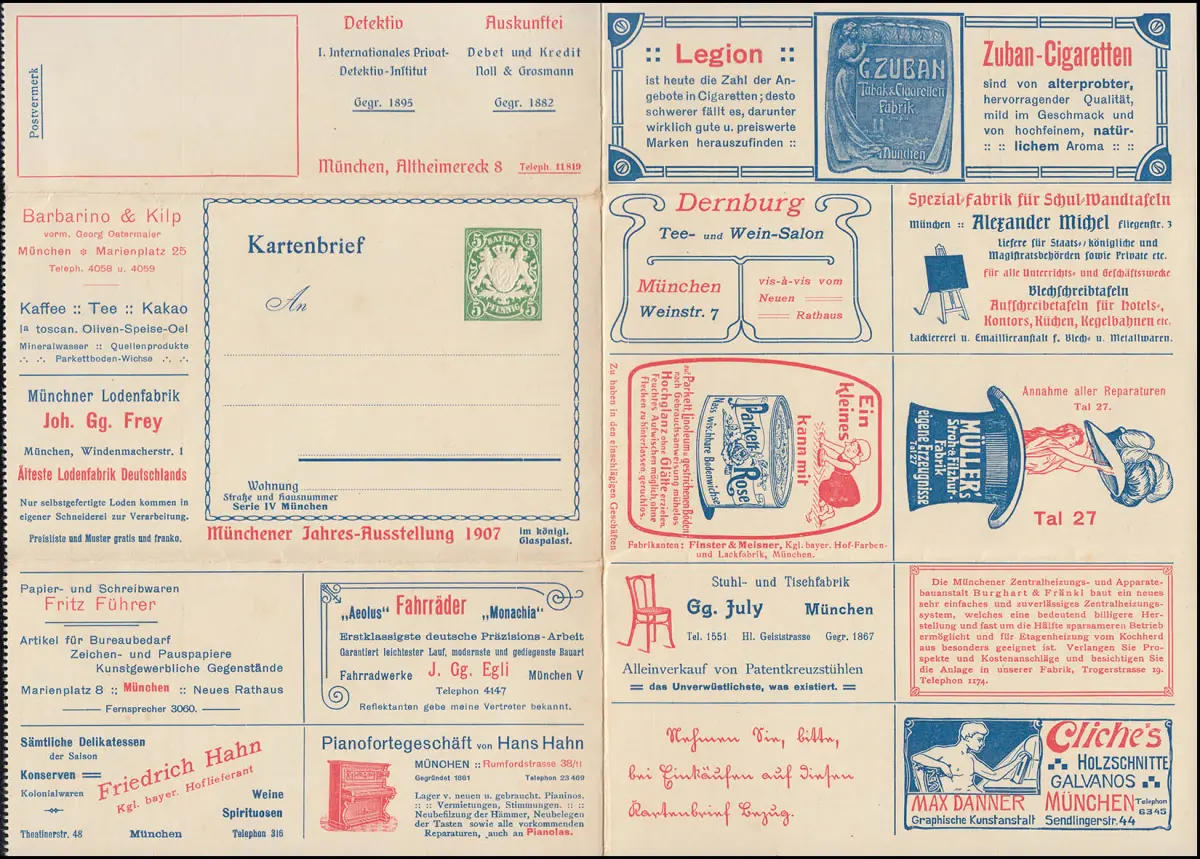 Postvermerk
Detektiv
I. Internationales Privat-
Detektiv-Institut
Gegr. 1895
Auskunftei
Debet und Kredit
Noll & Grosmann
Gegr. 1882
München, Altheimereck 8 Teleph. 11 819
Barbarino & Kilp
vorm. Georg Ostermaier
München * Marienplatz 25
Teleph. 4058 u. 4059
Kaffee :: Tee :: Kakao
Ia toscan. Oliven-Speise-Oel
Mineralwasser :: Quellenprodukte
Parkettboden-Wichse
Münchner Lodenfabrik
Joh. Gg. Frey
München, Windenmacherstr. 1
Älteste Lodenfabrik Deutschlands
Nur selbstgefertigte Loden kommen in
eigener Schneiderei zur Verarbeitung.
Preisliste und Muster gratis und franko.
Kartenbrief
BAYERN
5 5
5 PFENNIG 5
An
Wohnung
Straße und Hausnummer
Serie IV München
Münchener Jahres-Ausstellung 1907 im königl.
Glaspalast.
Papier- und Schreibwaren
Fritz Führer
Artikel für Bureaubedarf
Zeichen- und Pauspapiere
Kunstgewerbliche Gegenstände
Marienplatz 8 :: München :: Neues Rathaus
Fernsprecher 3060.
„Aeolus" Fahrräder „Monachia"
Erstklassigste deutsche Präzisions-Arbeit
Garantiert leichtester Lauf, modernste und gediegenste Bauart
Fahrradwerke J. Gg. Egli München V
Telephon 4147
Reflektanten gebe meine Vertreter bekannt.
Sämtliche Delikatessen
der Saison
Konserven
Kolonialwaren
Friedrich Hahn
Kgl. bayer. Hoflieferant
Weine
Spirituosen
Theatinerstr. 48 München Telephon 316
Pianofortegeschäft von Hans Hahn
MÜNCHEN :: Rumfordstrasse 38/II
Gegründet 1881 Telephon 23 469
Lager v. neuen u. gebraucht. Pianinos.
:: :: Vermietungen, Stimmungen. :: ::
Neubefilzung der Hämmer, Neubelegen
der Tasten sowie alle vorkommenden
Reparaturen, auch an Pianolas.
:: Legion ::
ist heute die Zahl der An-
gebote in Cigaretten; desto
schwerer fällt es, darunter
wirklich gute u. preiswerte
Marken herauszufinden ::
G. ZUBAN
Tabak & Cigaretten
Fabrik
München
Zuban-Cigaretten
sind von alterprobter,
hervorragender Qualität,
mild im Geschmack und
von hochfeinem, natür-
:: :: lichem Aroma :: ::
Dernburg
Tee- und Wein-Salon
München
Weinstr. 7
vis-à-vis vom
Neuen
Rathaus
Spezial-Fabrik für Schul-Wandtafeln
München :: Alexander Michel Fliegenstr. 3
Liefere für Staats-/königliche und
Magistratsbehörden sowie Private etc.
für alle Unterrichts- und Geschäftszwecke
Blechschreibtafeln
Aufschreibetafeln für Hotels-,
Kontors, Küchen, Kegelbahnen etc.
Lackiererei u. Emaillieranstalt f. Blech- u. Metallwaren.
Zu haben in den einschlägigen Geschäften
Ein
kleines
kann mit
Parkett
Rose
Nass wischbare Bodenwichse
auf Parkett, Linoleum u. gestrichenen Böden
nach Gebrauchsanweisung mühelos
Hochglanz ohne Glätte erzielen.
Feuchtes Aufwischen möglich, ohne
Flecken zu hinterlassen, geruchlos.
Fabrikanten: Finster & Meisner, Kgl. bayer. Hof-Farben-
und Lackfabrik, München.
Annahme aller Reparaturen
Tal 27.
MÜLLER'S
Stroh & Filzhut-
Fabrik
eigene Erzeugnisse
Tal 27
Tal 27
Stuhl- und Tischfabrik
Gg. July München
Tel. 1551 Hl. Geiststrasse Gegr. 1867
Alleinverkauf von Patentkreuzstühlen
das Unverwüstlichste, was existiert.
Die Münchener Zentralheizungs- und Apparate-
bauanstalt Burghart & Fränkl baut ein neues
sehr einfaches und zuverlässiges Zentralheizungs-
system, welches eine bedeutend billigere Her-
stellung und fast um die Hälfte sparsameren Betrieb
ermöglicht und für Etagenheizung vom Kochherd
aus besonders geeignet ist. Verlangen Sie Pro-
spekte und Kostenanschläge und besichtigen Sie
die Anlage in unserer Fabrik, Trogerstrasse 19.
Telephon 1174.
Nehmen Sie, bitte,
bei Einkäufen auf diesen
Kartenbrief Bezug.
Cliche's
HOLZSCHNITTE
GALVANOS
MAX DANNER MÜNCHEN Telephon
6345
Graphische Kunstanstalt Sendlingerstr. 44